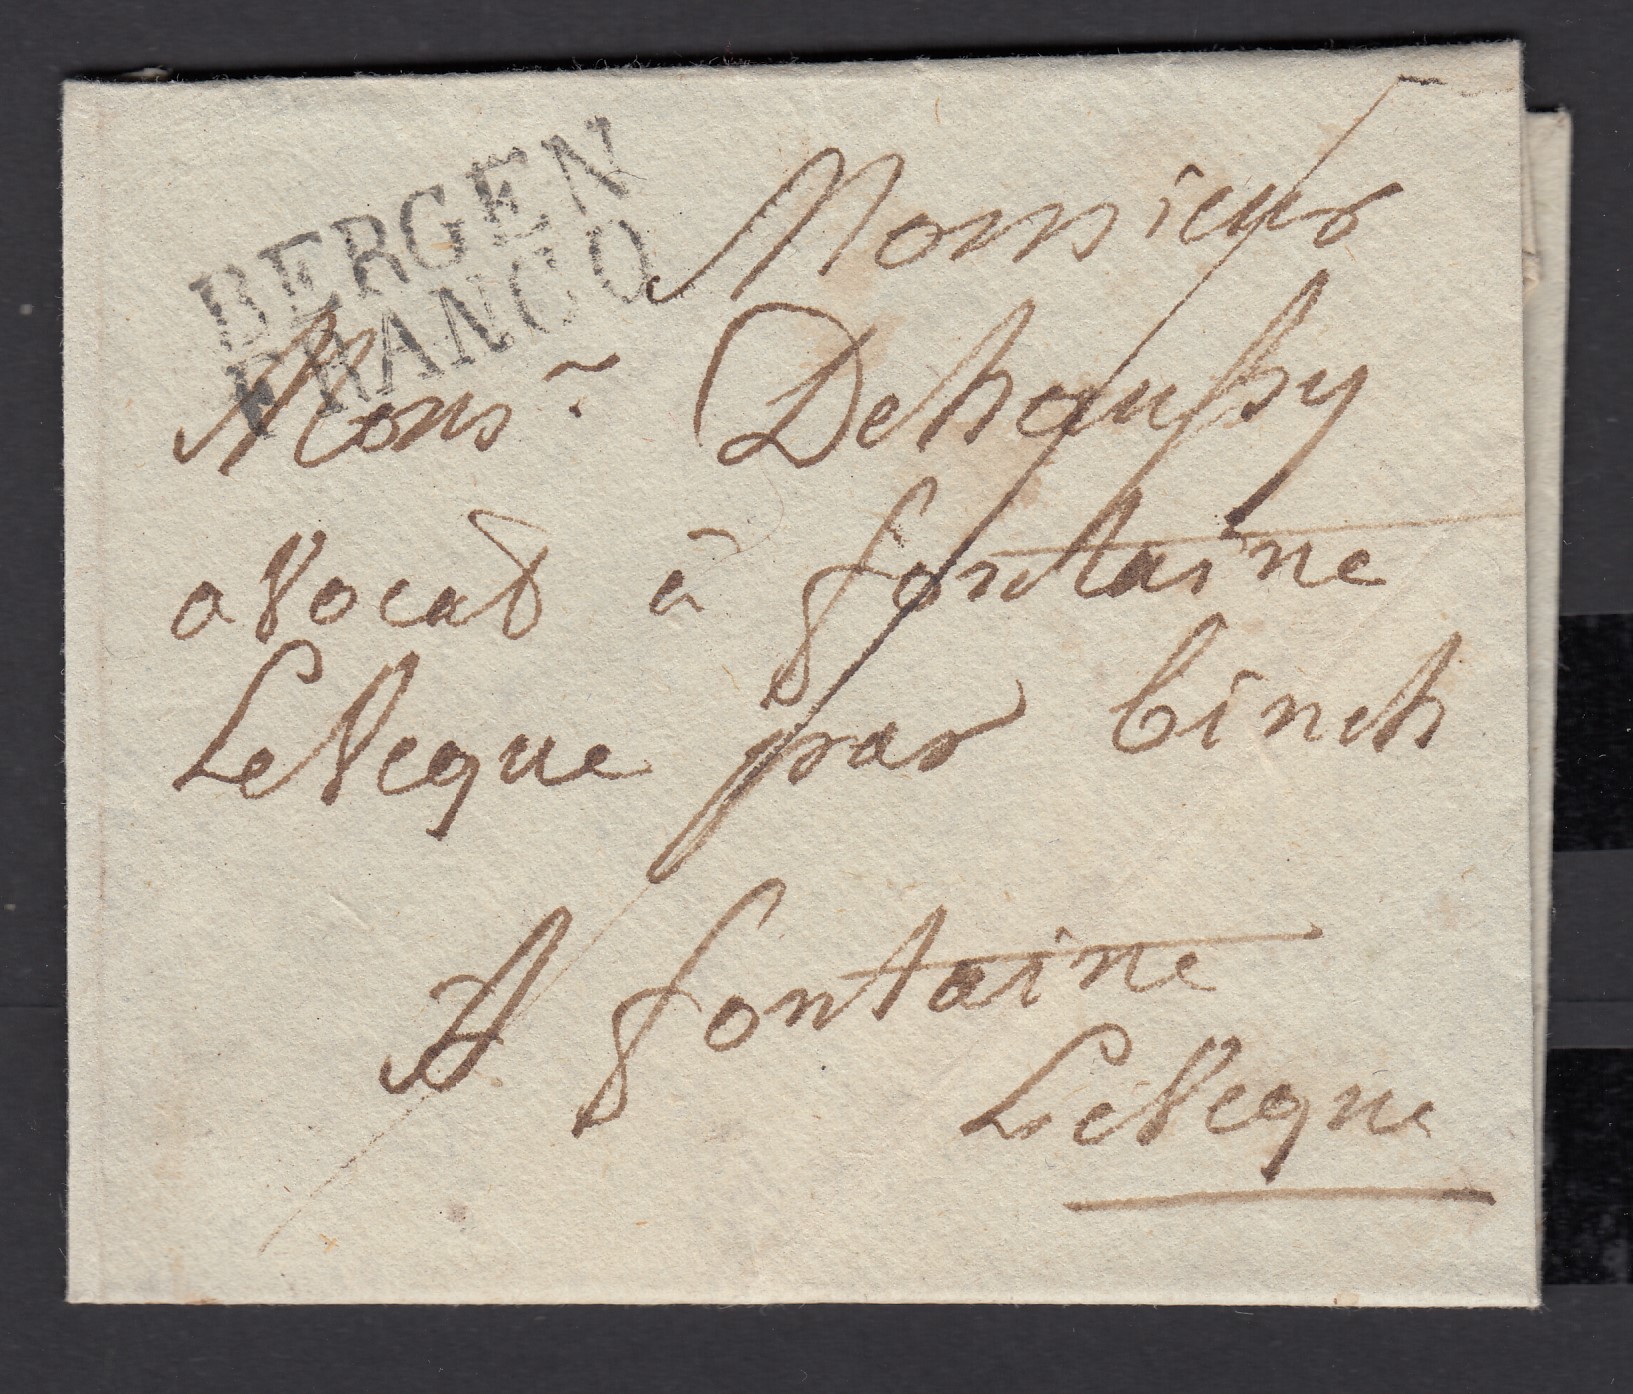 BERGEN
FRANCO
Monsieur
Monsr Dehoussy
avocat à fontaine
LeVeque par binch
A fontaine
LeVeque